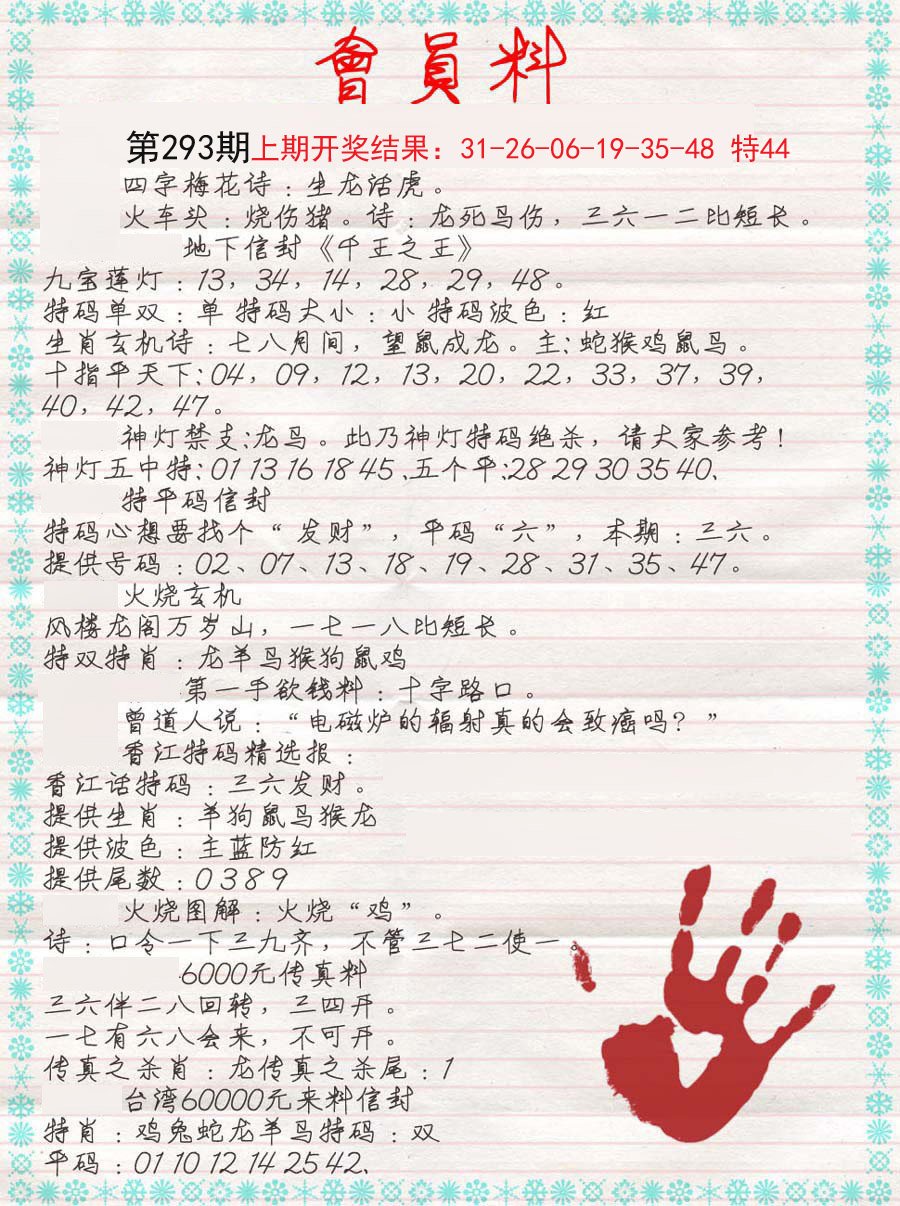 會員料
第293期上期开奖结果：31-26-06-19-35-48 特44
四字梅花诗：生龙活虎。
火车头：烧伤猪。诗：龙死马伤，三六一二比短长。
地下信封《千王之王》
九宝莲灯：13，34，14，28，29，48。
特码单双：单 特码大小：小 特码波色：红
生肖玄机诗：七八月间，望鼠成龙。主:蛇猴鸡鼠马。
十指平天下:04，09，12，13，20，22，33，37，39，
40，42，47。
神灯禁支:龙马。此乃神灯特码绝杀，请大家参考！
神灯五中特:01 13 16 18 45、五个平:28 29 30 35 40、
特平码信封
特码心想要找个“发财”，平码“六”，本期：三六。
提供号码：02、07、13、18、19、28、31、35、47。
火烧玄机
风楼龙阁万岁山，一七一八比短长。
特双特肖：龙羊马猴狗鼠鸡
第一手欲钱料：十字路口。
曾道人说：“电磁炉的辐射真的会致癌吗？”
香江特码精选报：
香江话特码：三六发财。
提供生肖：羊狗鼠马猴龙
提供波色：主蓝防红
提供尾数：0 3 8 9
火烧图解：火烧“鸡”。
诗：口令一下三九齐，不管三七二使一。
6000元传真料
三六伴二八回转，三四开。
一七有六八会来，不可开。
传真之杀肖：龙传真之杀尾：1
台湾60000元来料信封
特肖：鸡兔蛇龙羊马特码：双
平码：01 10 12 14 25 42、